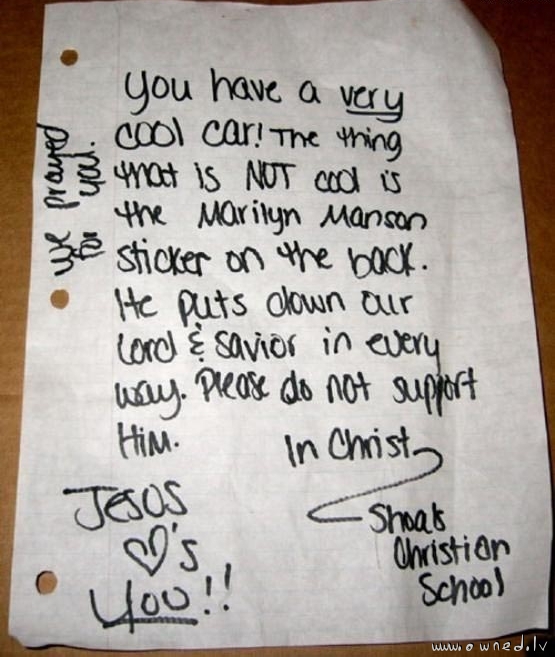 You have a very
cool car! The thing
that is NOT cool is
the Marilyn Manson
sticker on the back.
He puts down our
Lord & Savior in every
way. Please do not support
Him.
In Christ
Shoals
Christian
School
Jesus
♡'s
You!!
We prayed
for you.
www.owned.lv